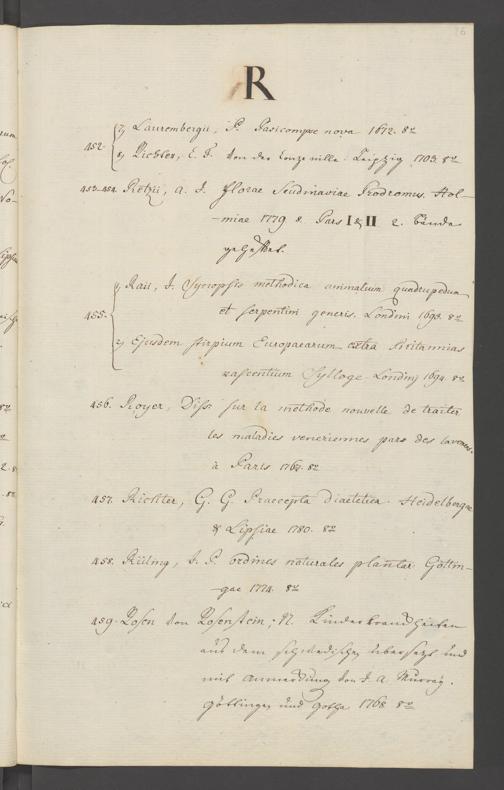 76
R
452. 1) Laurembergii, P. Pasicompse nova 1672. 8º
2) Richter, C. F. Von der Leipzig 1703. 8º
453.454. Retzii, A. J. Florae Scandinaviae Prodromus. Hol-
-miae 1779 8. Pars I & II 2. Bände
geheftet.
455. 1) Raii, J. Synopsis methodica animalium quadrupedum
et serpentini generis. Londini 1693. 8º
2) Ejusdem stirpium Europaearum extra Britannias
nascentium Sylloge Londini 1694. 8º
456. Royer, Diss. sur la methode nouvelle de traiter
les maladies veneriennes par des lavemens.
à Paris 1767. 8º
457. Richter, G. G. Praecepta diaetetica. Heidelbergae
& Lipsiae 1780. 8º
458. Rüling, J. P. ordines naturales plantar. Göttin-
-gae 1774. 8º
459. Rosen von Rosenstein, N. Kinderkrankheiten
aus dem schwedischen übersetzt und
mit Anmerkung von J. A. Murray.
Göttingen und Gotha 1768. 8º